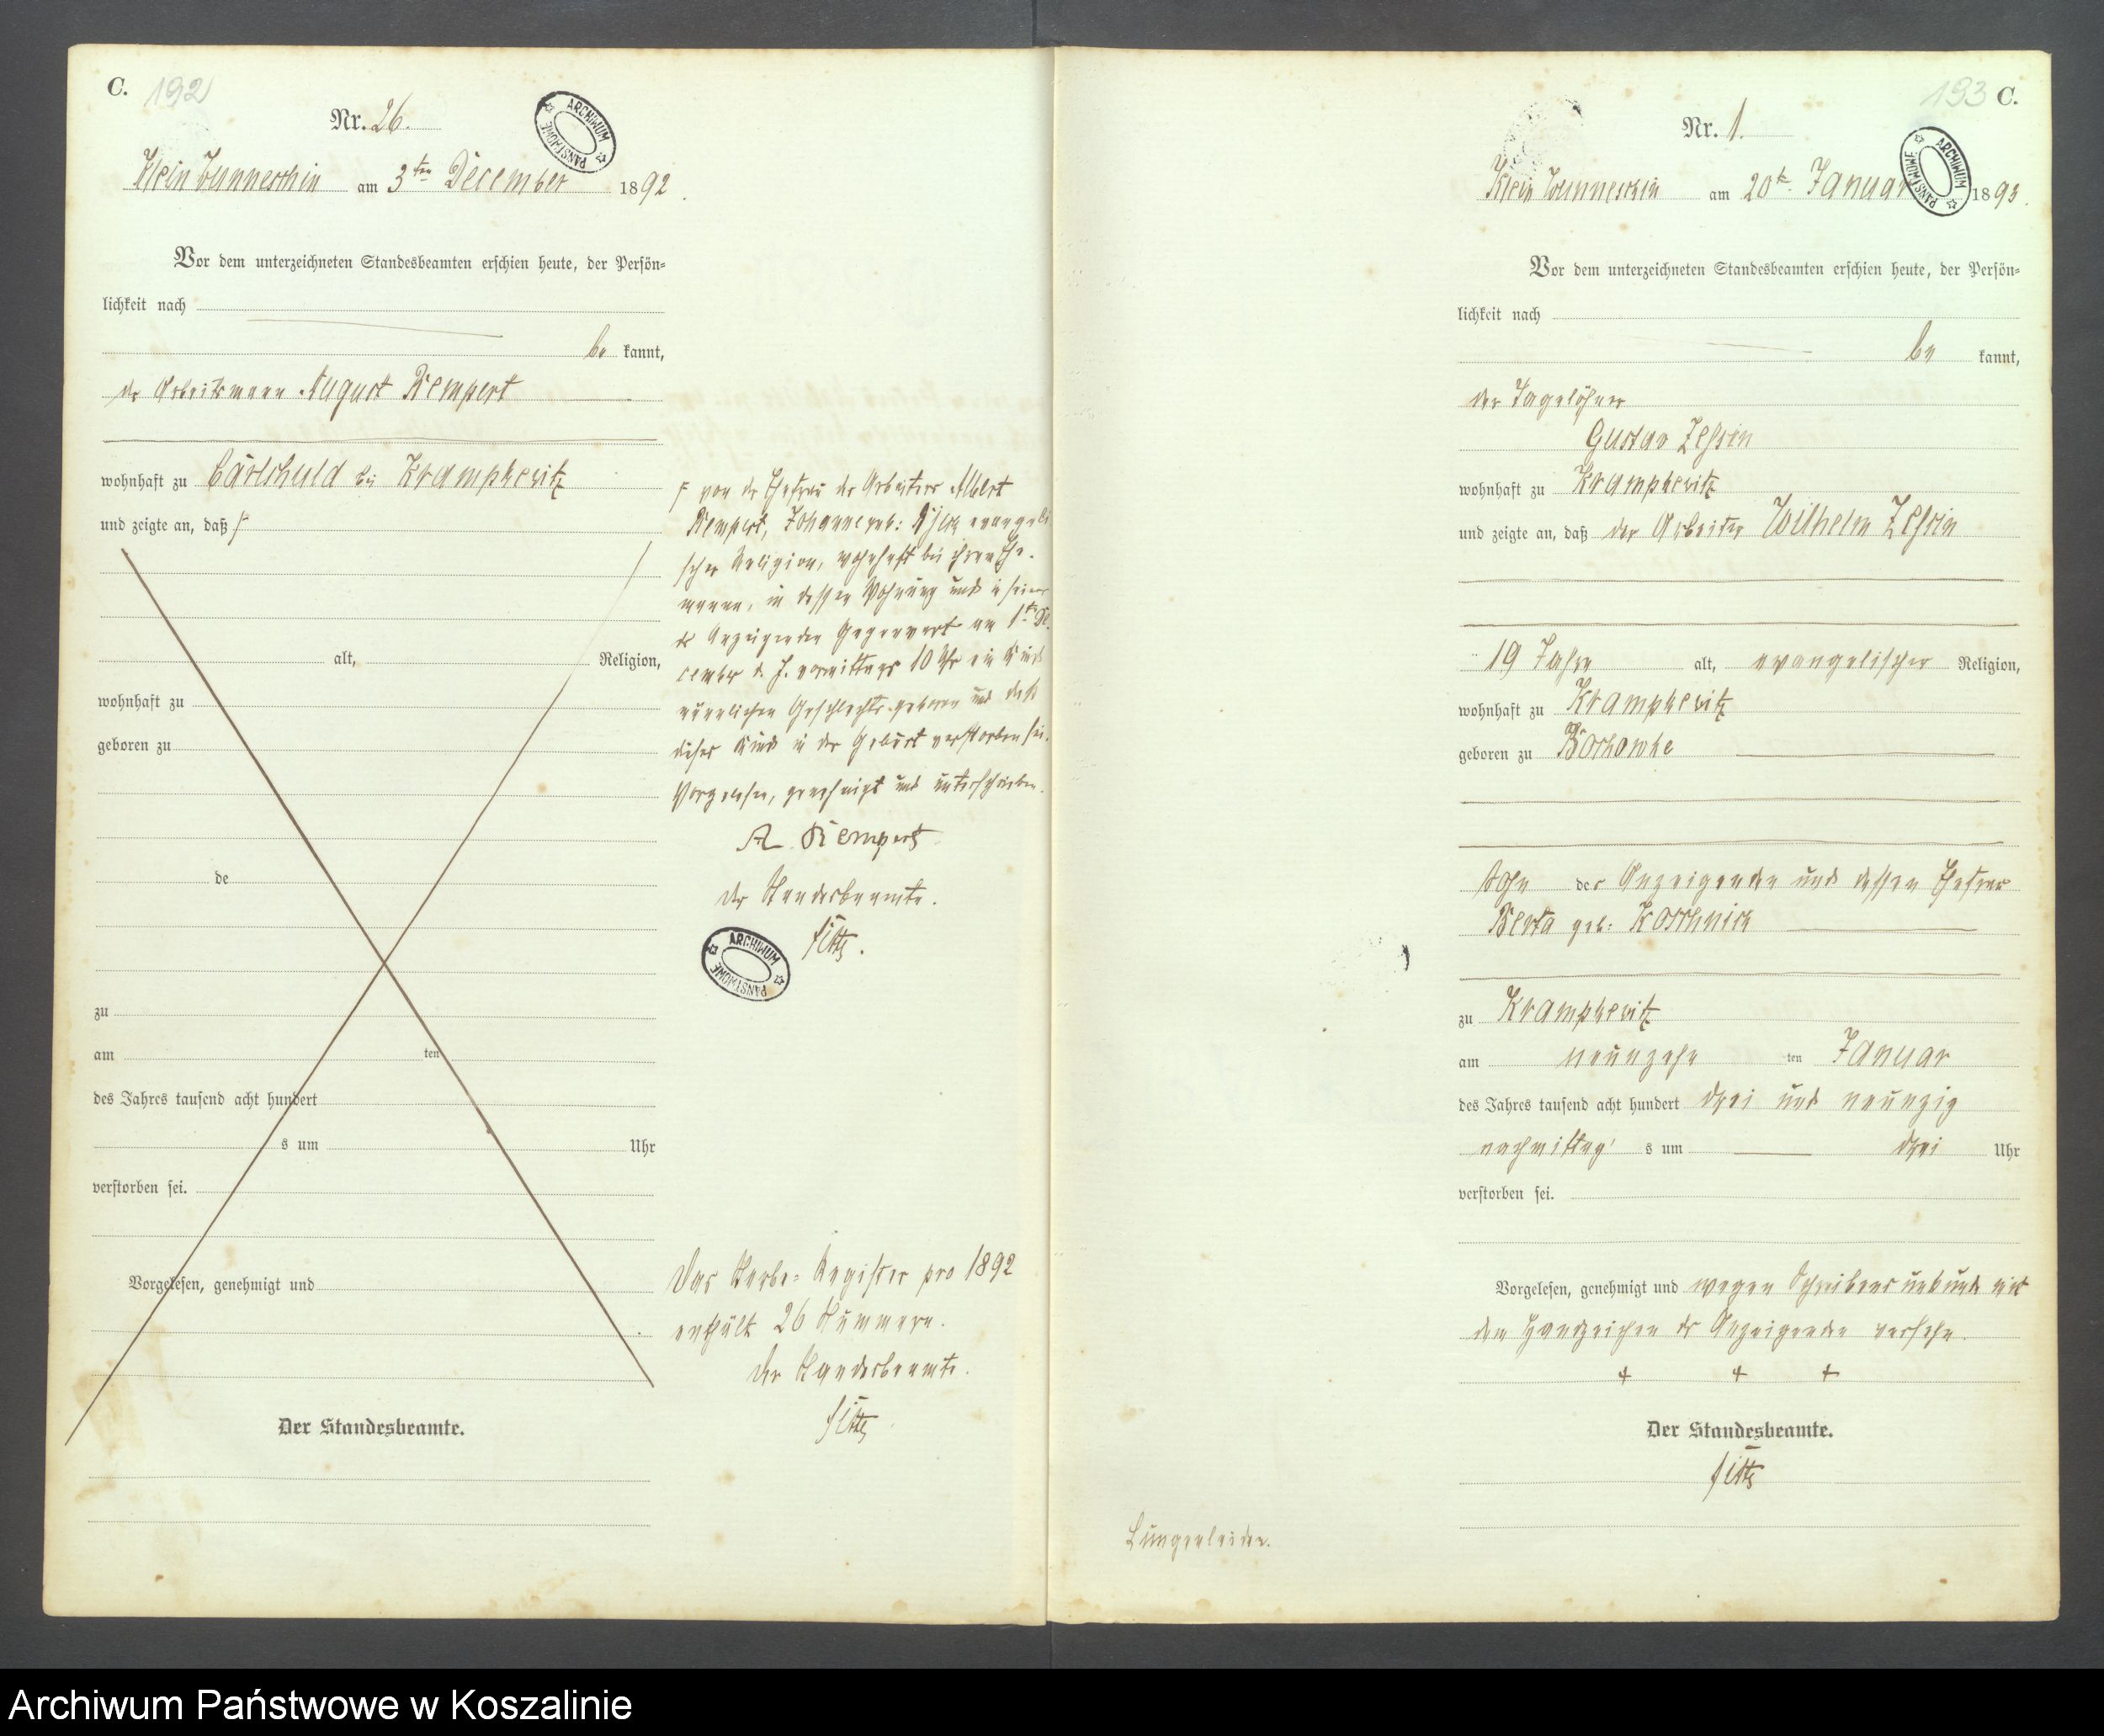 C. 192
Nr. 26.
ARCHIWUM PAŃSTWOWE
Klein Wunneschin am 3ten December 1892.
Vor dem unterzeichneten Standesbeamten erschien heute, der Persön-
lichkeit nach
be kannt,
der Arbeitsmann August Rempert
wohnhaft zu Carlshuld bei Krampkewitz
und zeigte an, daß
alt, Religion,
wohnhaft zu
geboren zu
de
zu
am ten
des Jahres tausend acht hundert
s um Uhr
verstorben sei.
Vorgelesen, genehmigt und
Der Standesbeamte.
von der Ehefrau des Arbeiters Albert
Rempert, Johanne geb: evangeli
scher Religion, wohnhaft bei ihrem Ehe-
manne, in dessen Wohnung und in seiner
des Anzeigenden Gegenwart am 1ten De-
cember d. J. vormittags 10 Uhr ein Kind
männlichen Geschlechts geboren und daß
dieses Kind in der Geburt verstorben sei.
Vorgelesen, genehmigt und unterschrieben.
A. Rempert
Der Standesbeamte.
ARCHIWUM PAŃSTWOWE
Das Sterbe-Register pro 1892
enthält 26 Nummern.
Der Standesbeamte.
193 C.
Nr. 1.
ARCHIWUM PAŃSTWOWE
Klein Wunneschin am 20te Januar 1893.
Vor dem unterzeichneten Standesbeamten erschien heute, der Persön-
lichkeit nach
be kannt,
der Tagelöhner
Gustav Zessin
wohnhaft zu Krampkewitz
und zeigte an, daß der Arbeiter Wilhelm Zessin
19 Jahre alt, evangelischer Religion,
wohnhaft zu Krampkewitz
geboren zu Bochowke
Sohn des Anzeigenden und dessen Ehefrau
Berta geb: Koschnick
zu Krampkewitz
am neunzehn ten Januar
des Jahres tausend acht hundert drei und neunzig
nachmittag s um drei Uhr
verstorben sei.
Vorgelesen, genehmigt und wegen Schreibensunkunde mit
dem Handzeichen des Anzeigenden versehn.
+ + +
Der Standesbeamte.
Lungenleiden.
Archiwum Państwowe w Koszalinie